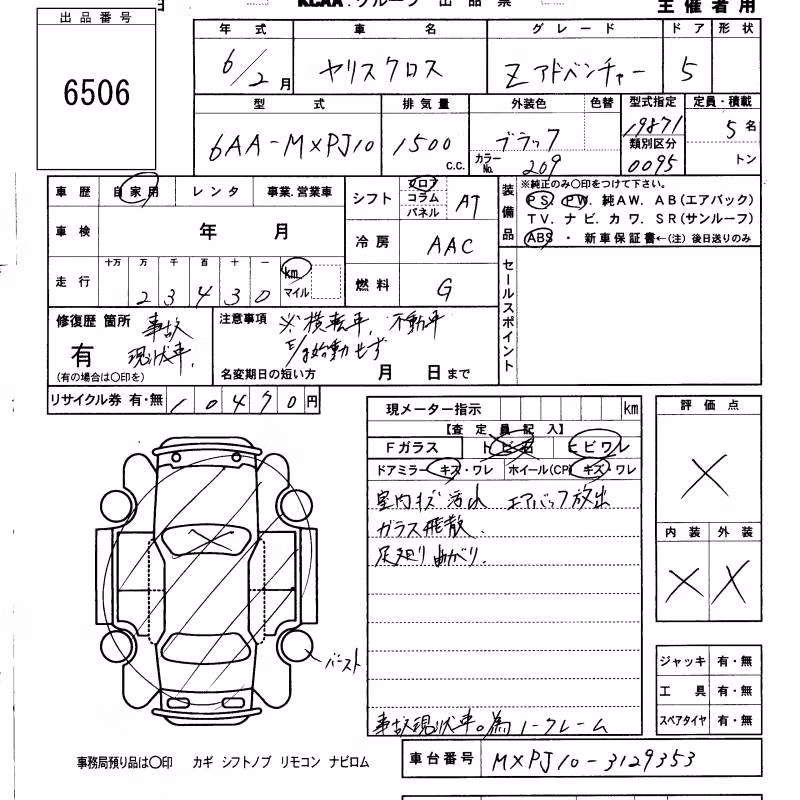 KCAA グループ 出品票
主催者用
出品番号
6506
年式 車名 グレード ドア 形状
6/2月 ヤリスクロス Z アドベンチャー 5
型式 排気量 外装色 色替 型式指定 定員・積載
6AA-MXPJ10 1500 c.c. ブラック 19871 5名
類別区分
カラーNo. 209 0095 トン
車歴 自家用 レンタ 事業・営業車
シフト フロア コラム パネル AT
車検 年 月
冷房 AAC
走行 十万 万 千 百 十 一
23430 km マイル
燃料 G
装備品
※純正のみ〇印をつけて下さい。
PS. PW. 純AW. AB(エアバック)
TV. ナビ. カワ. SR(サンルーフ)
ABS ・ 新車保証書←(注) 後日送りのみ
セールスポイント
修復歴 箇所 事故
有 現状車.
(有の場合は〇印を)
注意事項 ※横転車. 不動車
E/g始動せず
名変期日の短い方 月 日まで
リサイクル券 有・無 10470円
現メーター指示 km
【査定員記入】
Fガラス トビ石 ヒビワレ
ドアミラー キズ・ワレ ホイール(CP) キズ・ワレ
室内キズ 汚れ エアバック放出
ガラス飛散.
足廻り曲がり.
事故現状車。為ノークレーム
評価点
×
内装 外装
× ×
バースト
ジャッキ 有・無
工具 有・無
スペアタイヤ 有・無
事務局預り品は〇印 カギ シフトノブ リモコン ナビロム
車台番号 MXPJ10-3129353